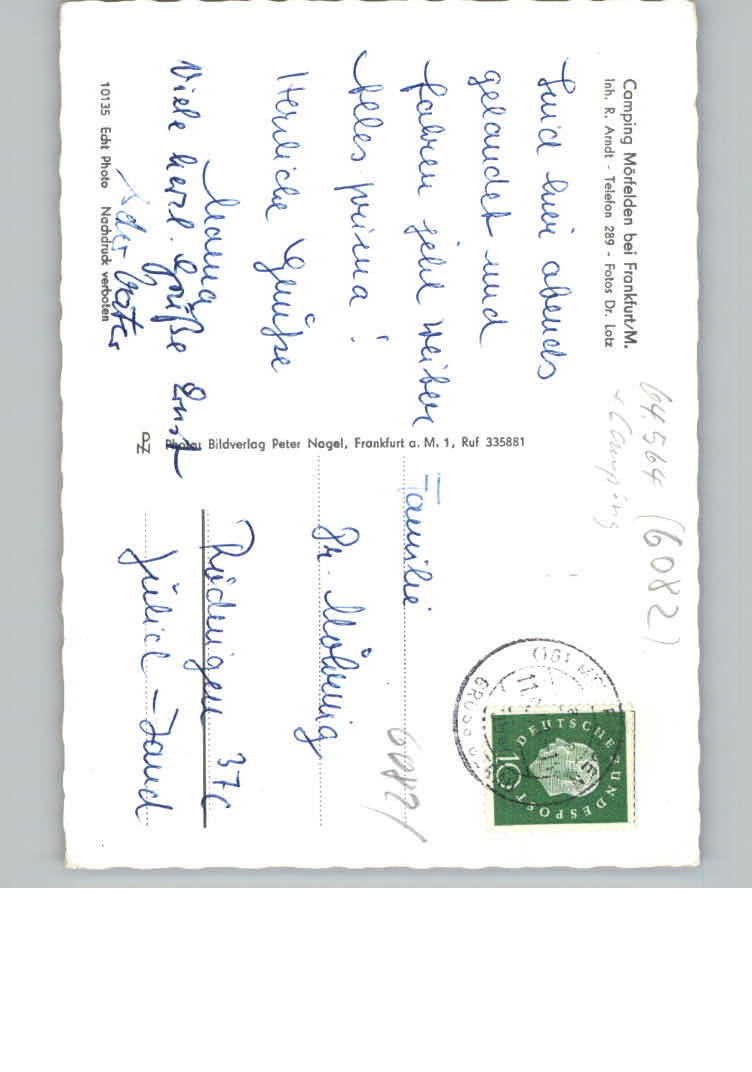 Camping Mörfelden bei Frankfurt/M.
Inh. R. Arndt - Telefon 289 - Fotos Dr. Lotz
Sind hier abends
gelandet und
fahren jetzt weiter
Alles prima!
Herrliche Grüße
Mama
Viele herzl. Grüße Ernst
Vater
10135 Echt Photo Nachdruck verboten
Photo: Bildverlag Peter Nagel, Frankfurt a. M. 1, Ruf 335881
64,564 (6082)
+ Camping
Familie
Dr.
37c
Jülich - Land
6082
DEUTSCHE BUNDESPOST
10
(16)
GROSS